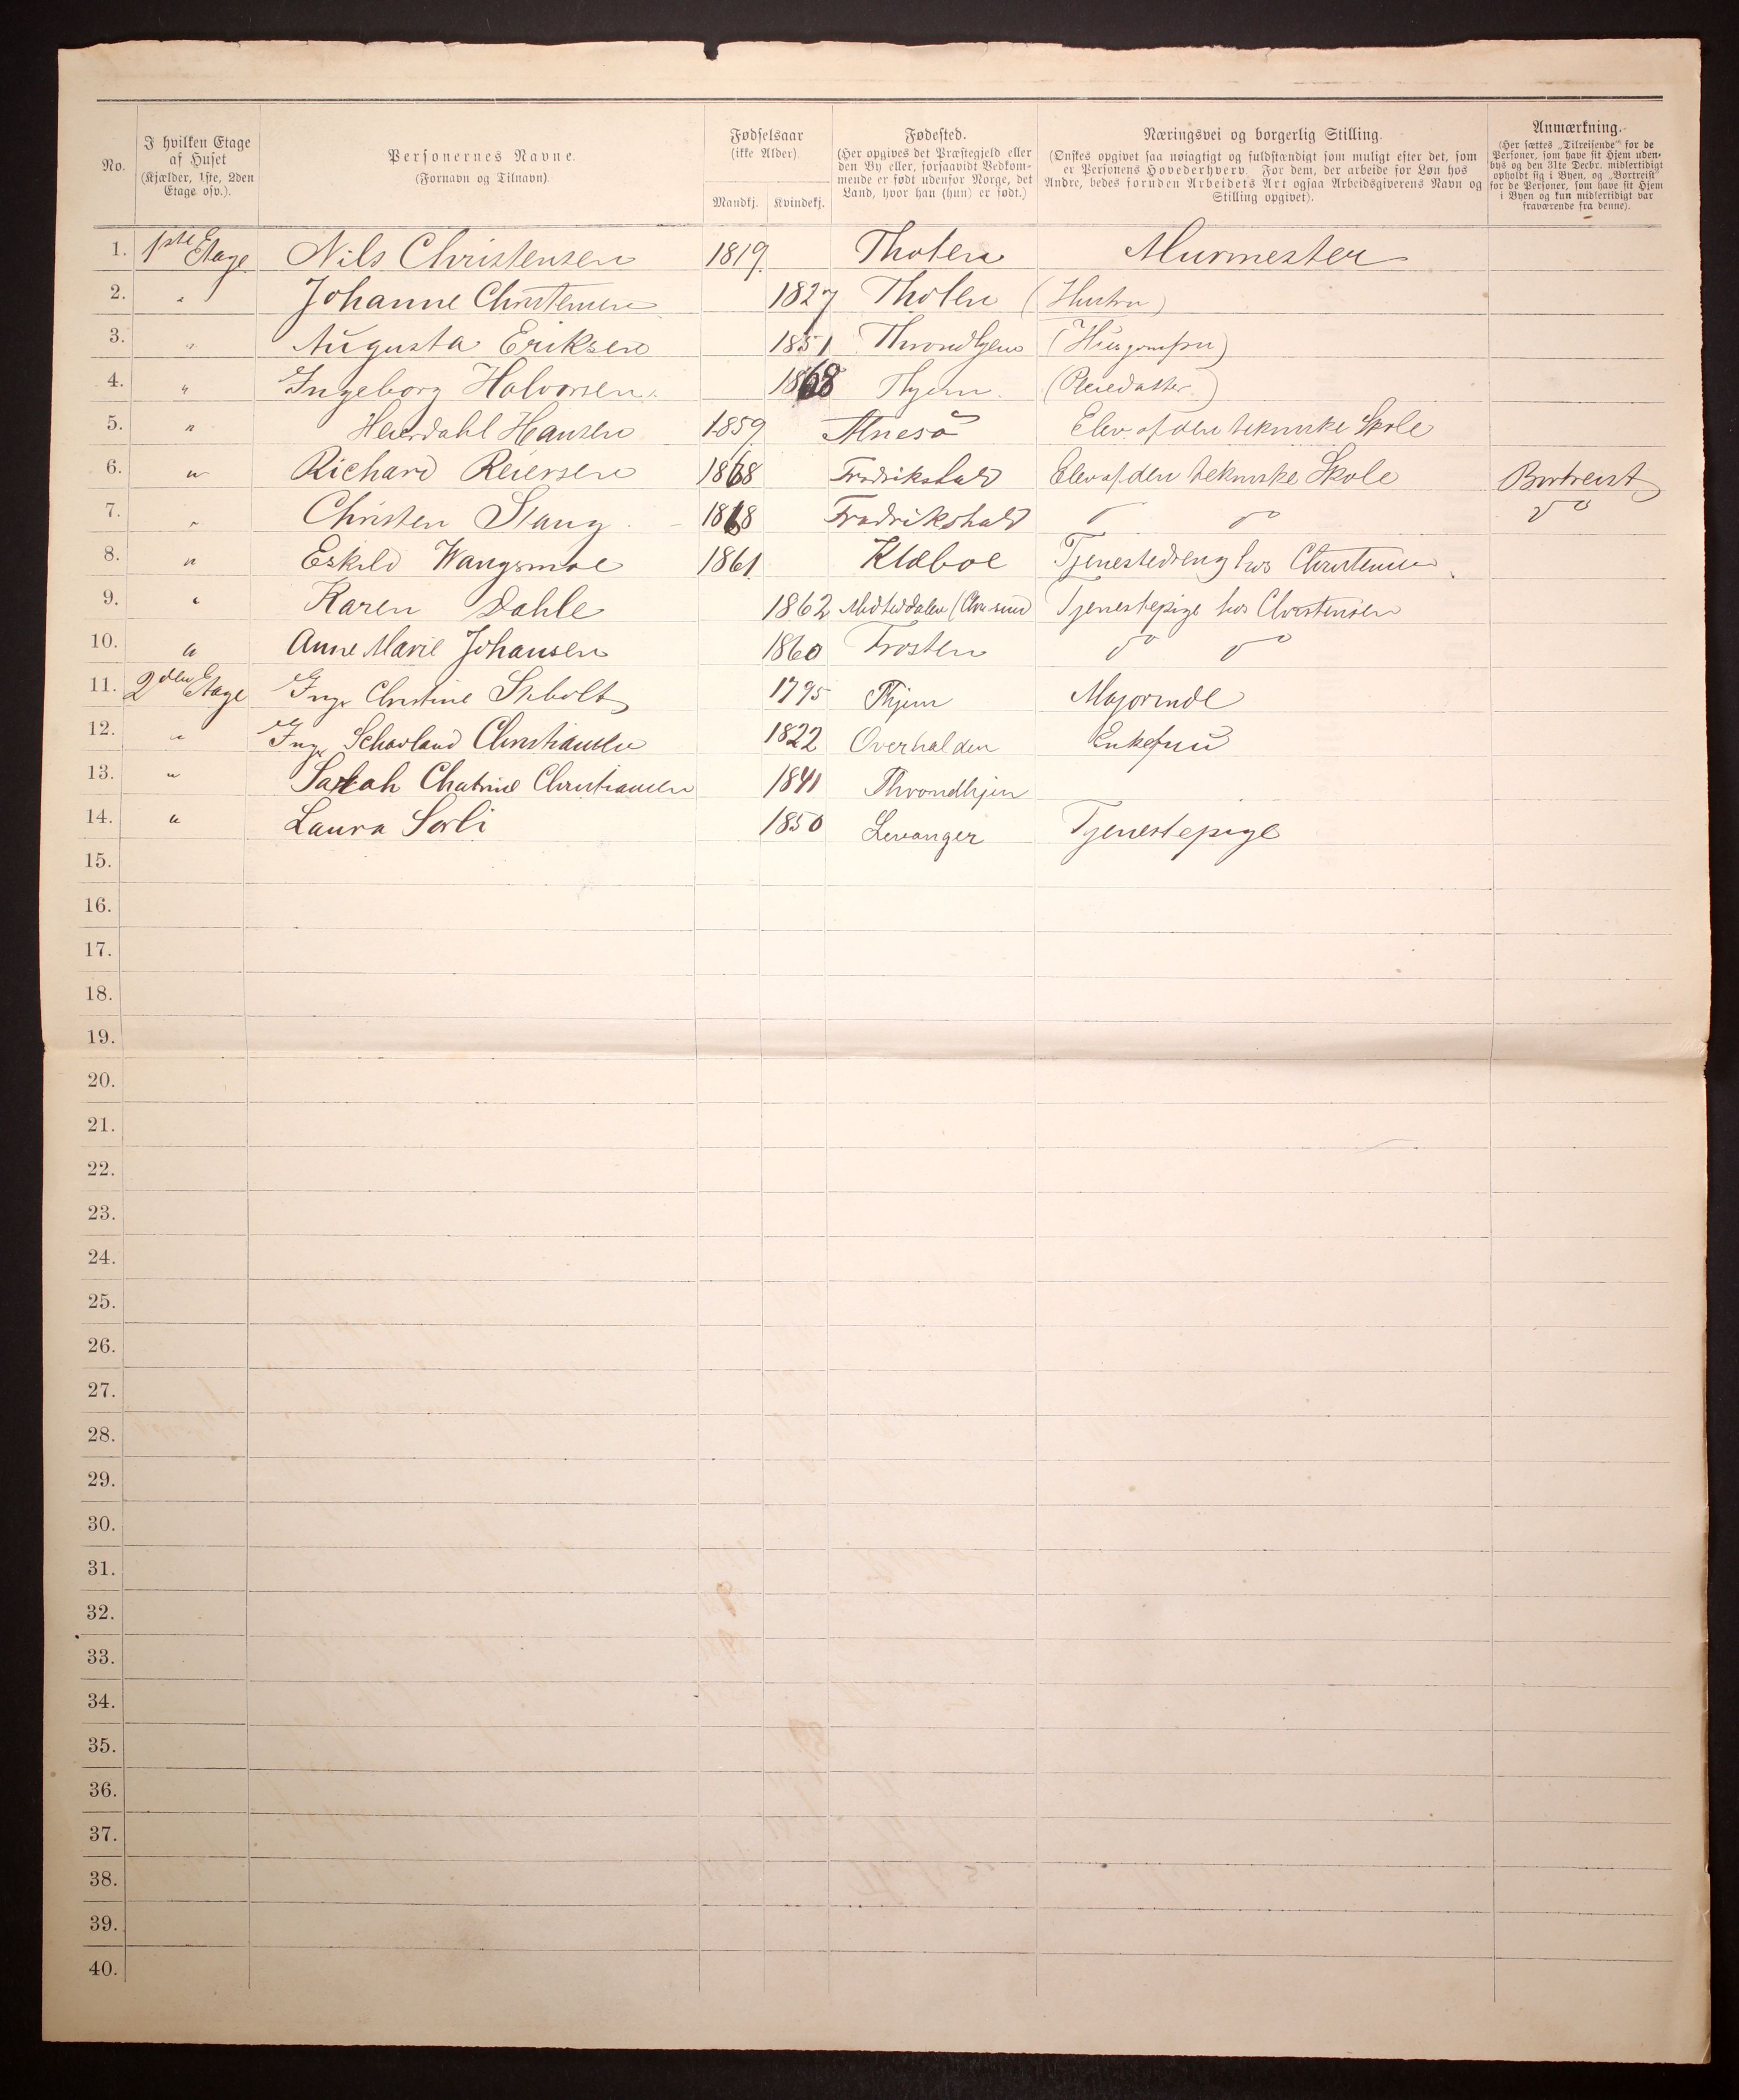 No. I hvilken Etage af Huset (Kjælder, 1ste, 2den Etage osv.). Personernes Navne. (Fornavn og Tilnavn) Fødselsaar (ikke Alder) Mandkj. Kvindekj. Fødested. (Her opgives det Præstegjeld eller den By eller, forsaavidt Vedkommende er født udenfor Norge, det Land, hvor han (hun) er født.) Næringsvei og borgerlig Stilling. (Ønskes opgivet saa nøiagtigt og fuldstændigt som muligt efter det, som er Personens Hovederhverv. For dem, der arbeide for Løn hos Andre, bedes foruden Arbeidets Art ogsaa Arbeidsgiverens Navn og Stilling opgivet). Anmærkning. (Her sættes „Tilreisende“ for de Personer, som have sit Hjem udenbys og den 31te Decbr. midlertidigt opholdt sig i Byen, og „Bortreist“ for de Personer, som have sit Hjem i Byen og kun midlertidigt var fraværende fra denne).
1. 1ste Etage Nils Christensen 1819 Thoten Murmester
2. " Johanne Christensen 1827 Thoten (Hustru)
3. " Augusta Eriksen 1851 Throndhjem (Husjomfru)
4. " Ingeborg Halvorsen 1868 Thjem. (Pleiedatter)
5. " Heierdahl Hansen 1859 Elev af den tekniske Skole
6. " Richard Reiersen 1868 Fredrikshald Elev af den tekniske Skole Bortreist
7. " Christen Stang 18 8 Fredrikshald do do do
8. " Eskild Wangsmoe 1861 Klæboe Tjenestedreng hos Christensen
9. " Karen Dahle 1862 Tjenestepige hos Christensen
10. " Anne Marie Johansen 1860 Frosten do do
11. 2den Etage Inge Christine 1795 Thjem Majorinde
12. " Inge Schavland Christiansen 1822 Overhalden Enkefru
13. " Sarah Chatrine Christiansen 1841 Throndhjem
14. " Laura Sorli 1850 Levanger Tjenestepige
15.
16.
17.
18.
19.
20.
21.
22.
23.
24.
25.
26.
27.
28.
29.
30.
31.
32.
33.
34.
35.
36.
37.
38.
39.
40.